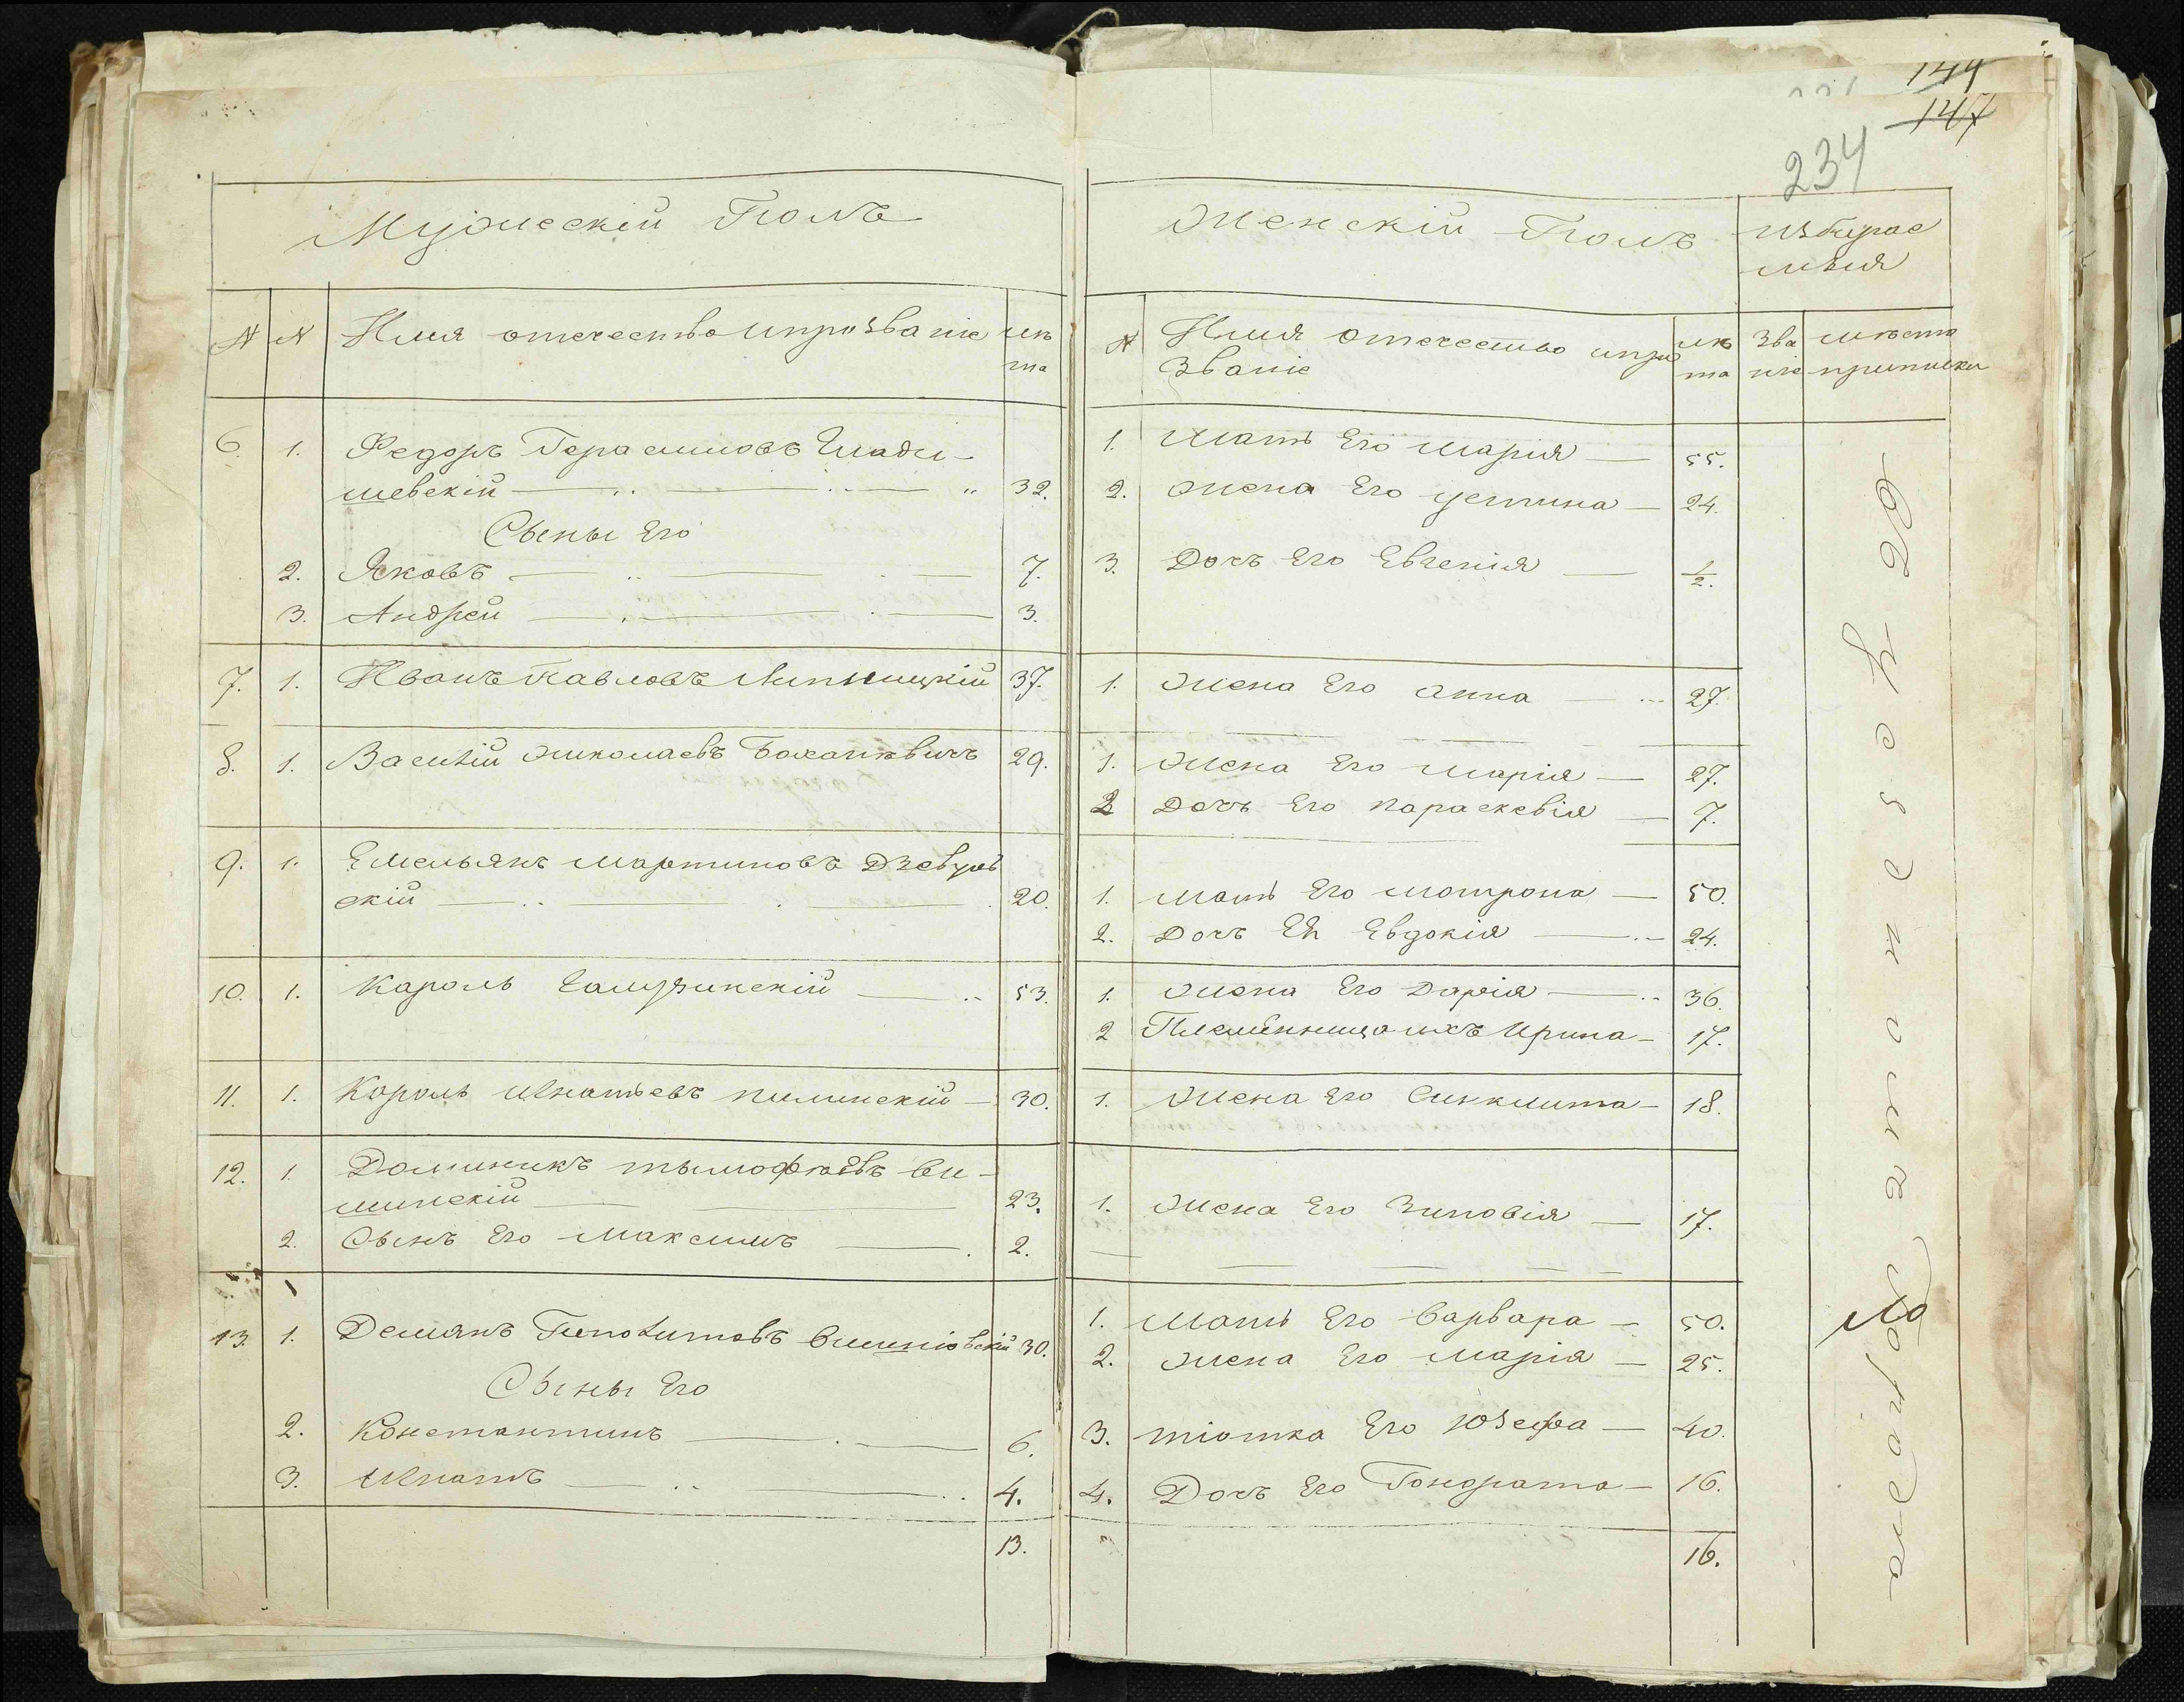 144
147
234
Мужескій Полъ
N N Имя отечество и прозваніе лѣ
та
6. 1. Федоръ Герасимовъ Глади-
шевскій 32.
Сыны Его
2. Яковъ 7.
3. Андрей 3.
7. 1. Иванъ Павловъ Липницкій 37.
8. 1. Василій Николаевъ 29.
9. 1. Емельянъ Мартиновъ
скій 20.
10. 1. Кароль 53.
11. 1. Кароль Игнатьевъ Пилинскій 30.
12. 1. Доминикъ Тымофѣевъ Ви-
шинскій 23.
2. Сынъ Его Максимъ 2.
13. 1. Демянъ 30.
Сыны Его
2. Константинъ 6.
3. Игнатъ 4.
13.
Женскій Полъ
N Имя отечество и про лѣ
Званіе та
Зва мѣсто
ніе приписки
1. Мать Его Марія 55.
2. Жена Его Устина 24.
3. Дочъ Его Евгенія 1/2.
1. Жена Его Анна 27.
1. Жена Его Марія 27.
2 Дочъ Его Параскевія 7.
1. Мать Его Мотрона 50.
2. Дочъ Ея Евдокія 24.
1. Жена Его Дарія 36.
2 Племѣнница ихъ Ирина 17.
1. Жена Его Синклита 18.
1. Жена Его Зиновія 17.
1. Мать Его Варвара 50.
2. Жена Его Марія 25.
3. Тіотка Его Юзефа 40.
4. Дочъ Его Гонората 16.
16.